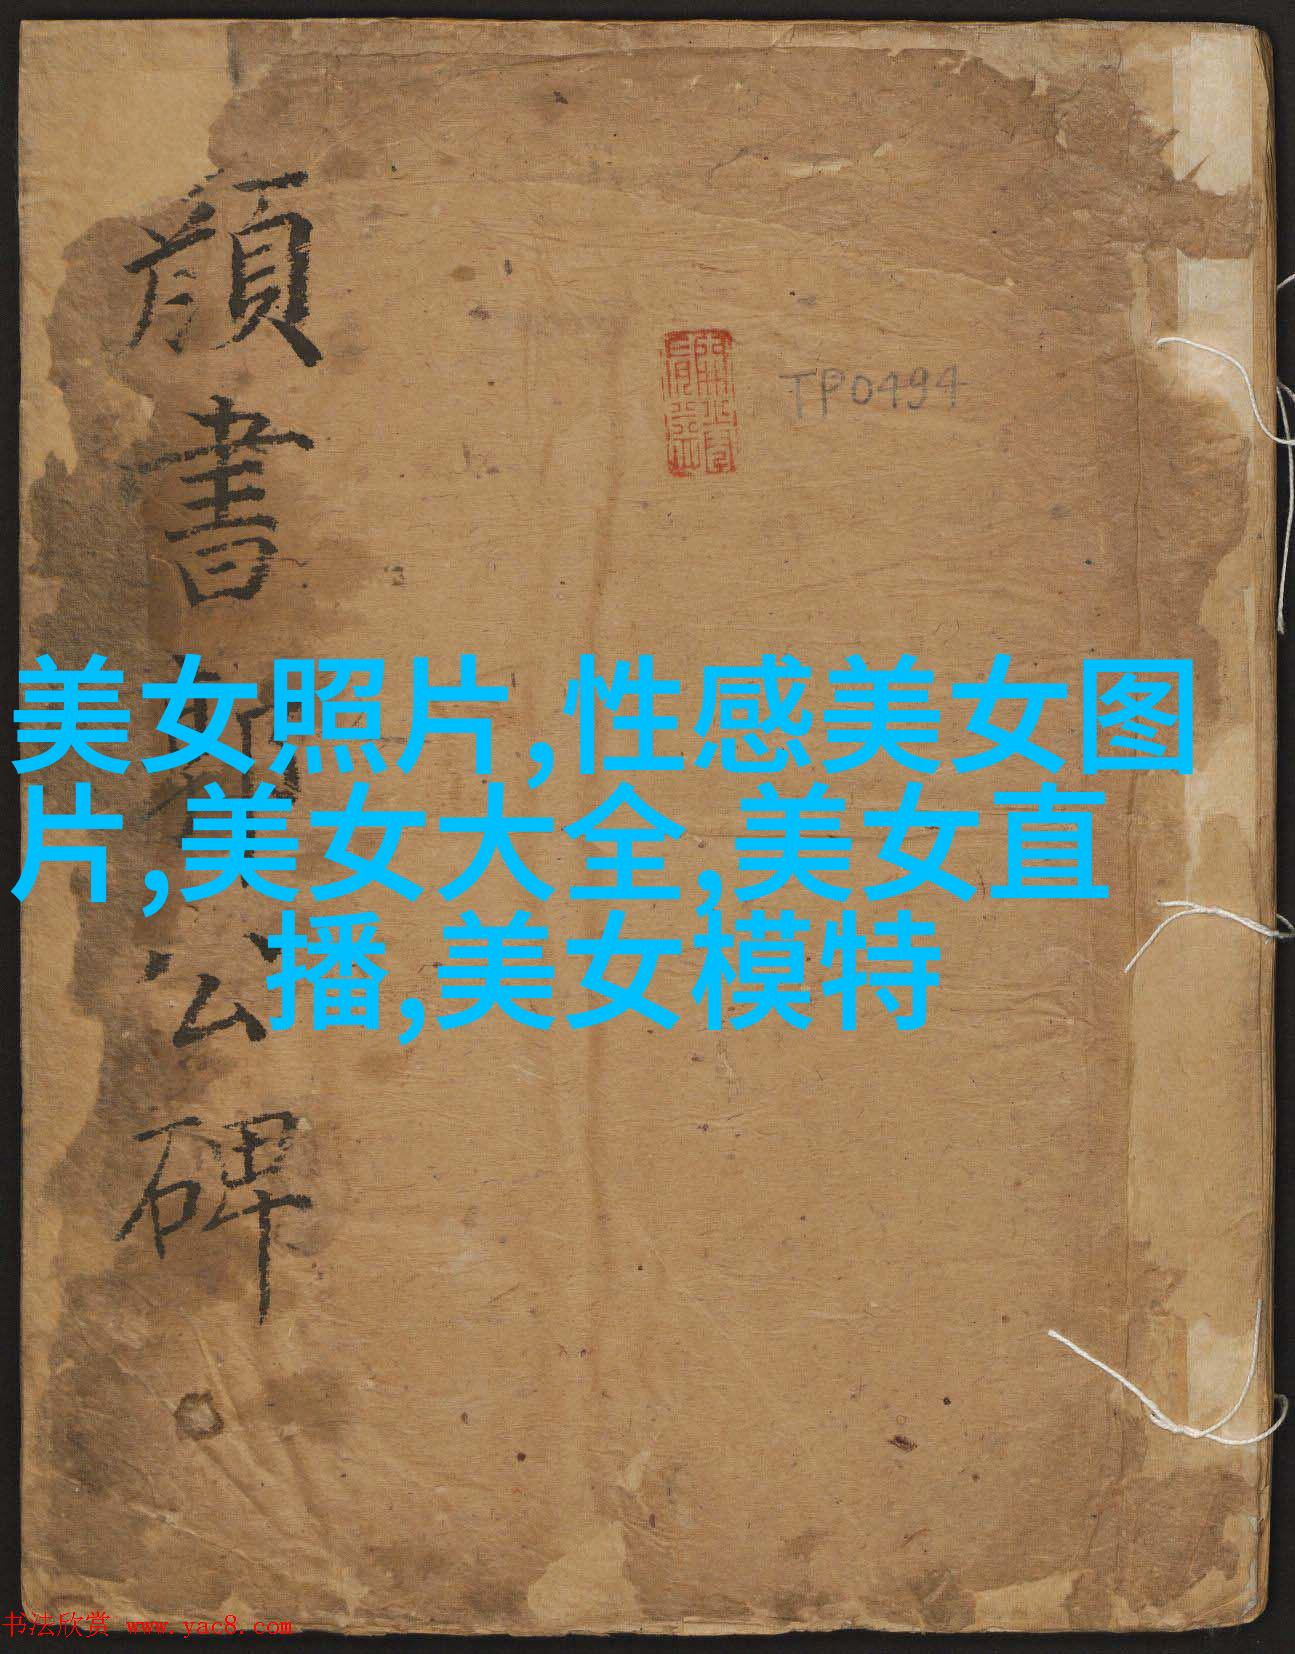 顔書
公碑
TP0494
美女照片,性感美女图
片,美女大全,美女直
播,美女模特
书法欣赏 www.yac8.com